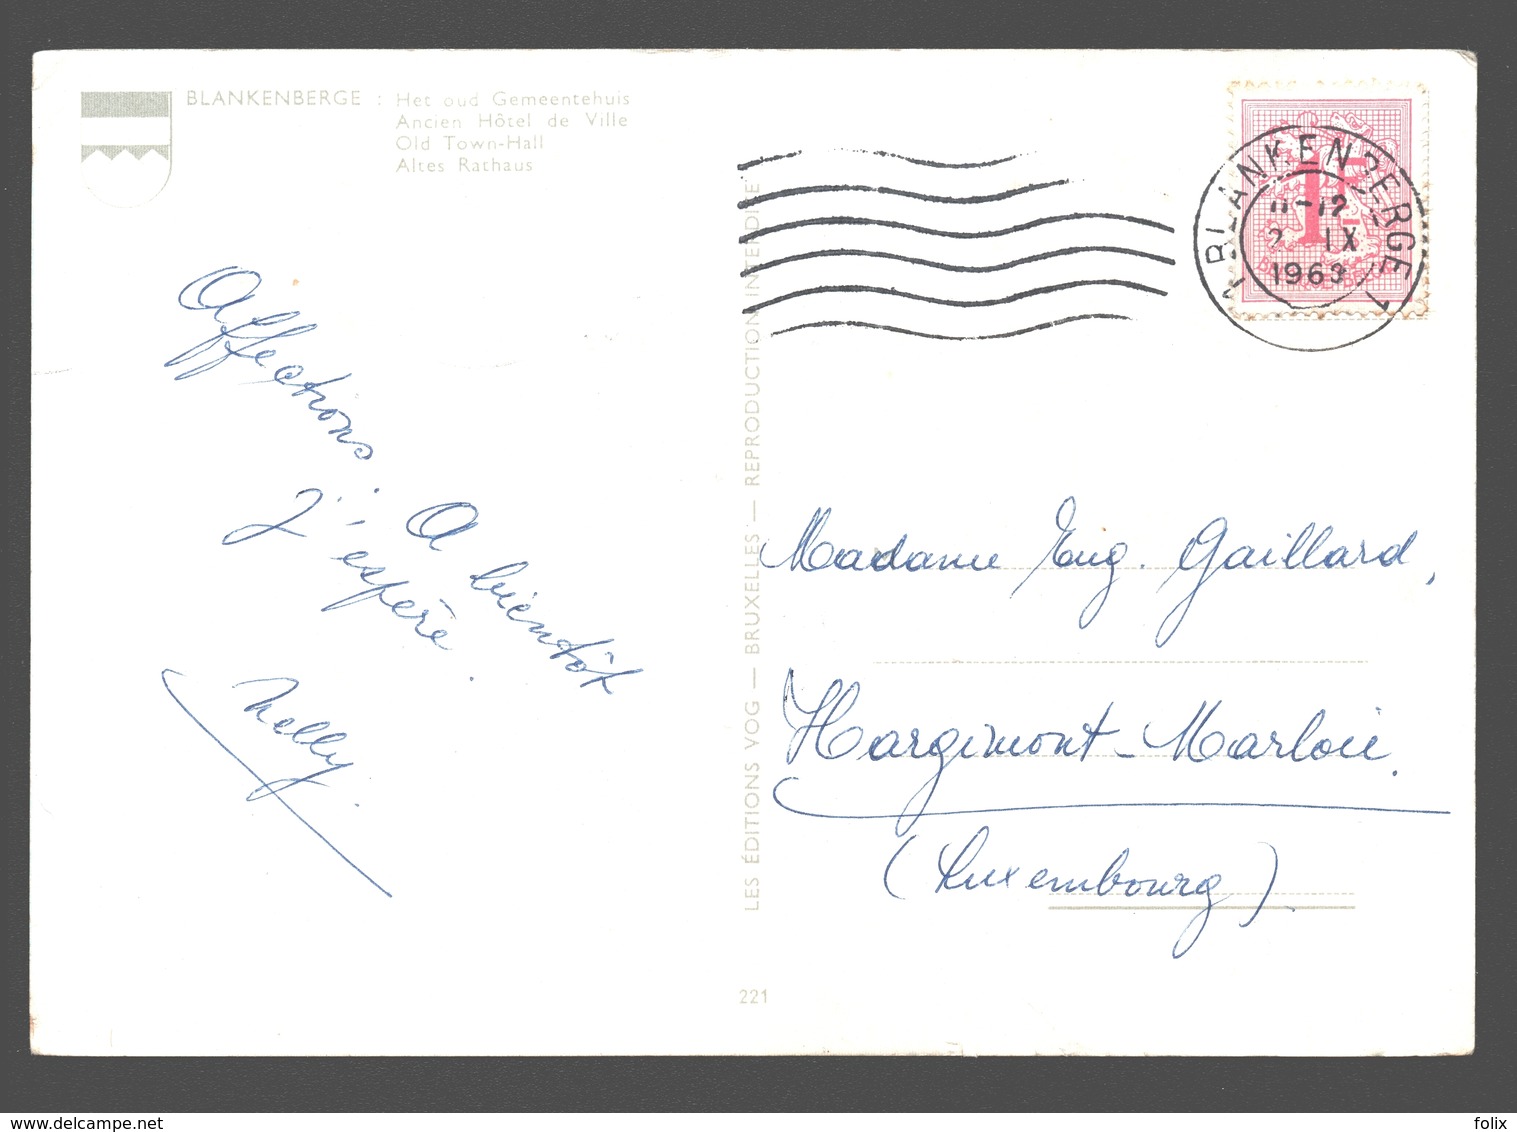 BLANKENBERGE : Het oud Gemeentehuis
Ancien Hôtel de Ville
Old Town-Hall
Altes Rathaus
BLANKENBERGE
11-12
2 IX
1963
1F
Affections.
A bientôt
j'espère.
Nelly.
LES ÉDITIONS VOG — BRUXELLES — REPRODUCTION INTERDITE
Madame Eug. Gaillard,
Hargimont-Marloie.
(Luxembourg).
221
felix